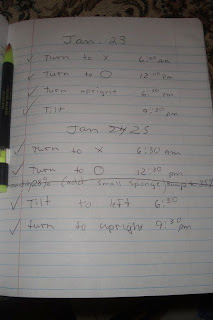 Jan. 23
✓ Turn to X 6:00 am
✓ Turn to O 12:00 pm
✓ Turn upright 6:00 pm
✓ Tilt 9:30 pm
Jan 25
✓ Turn to X 6:30 am
✓ Turn to O 12:30 pm
(add small sponge
✓ Tilt to left 6:30
✓ turn to upright 9:30 pm